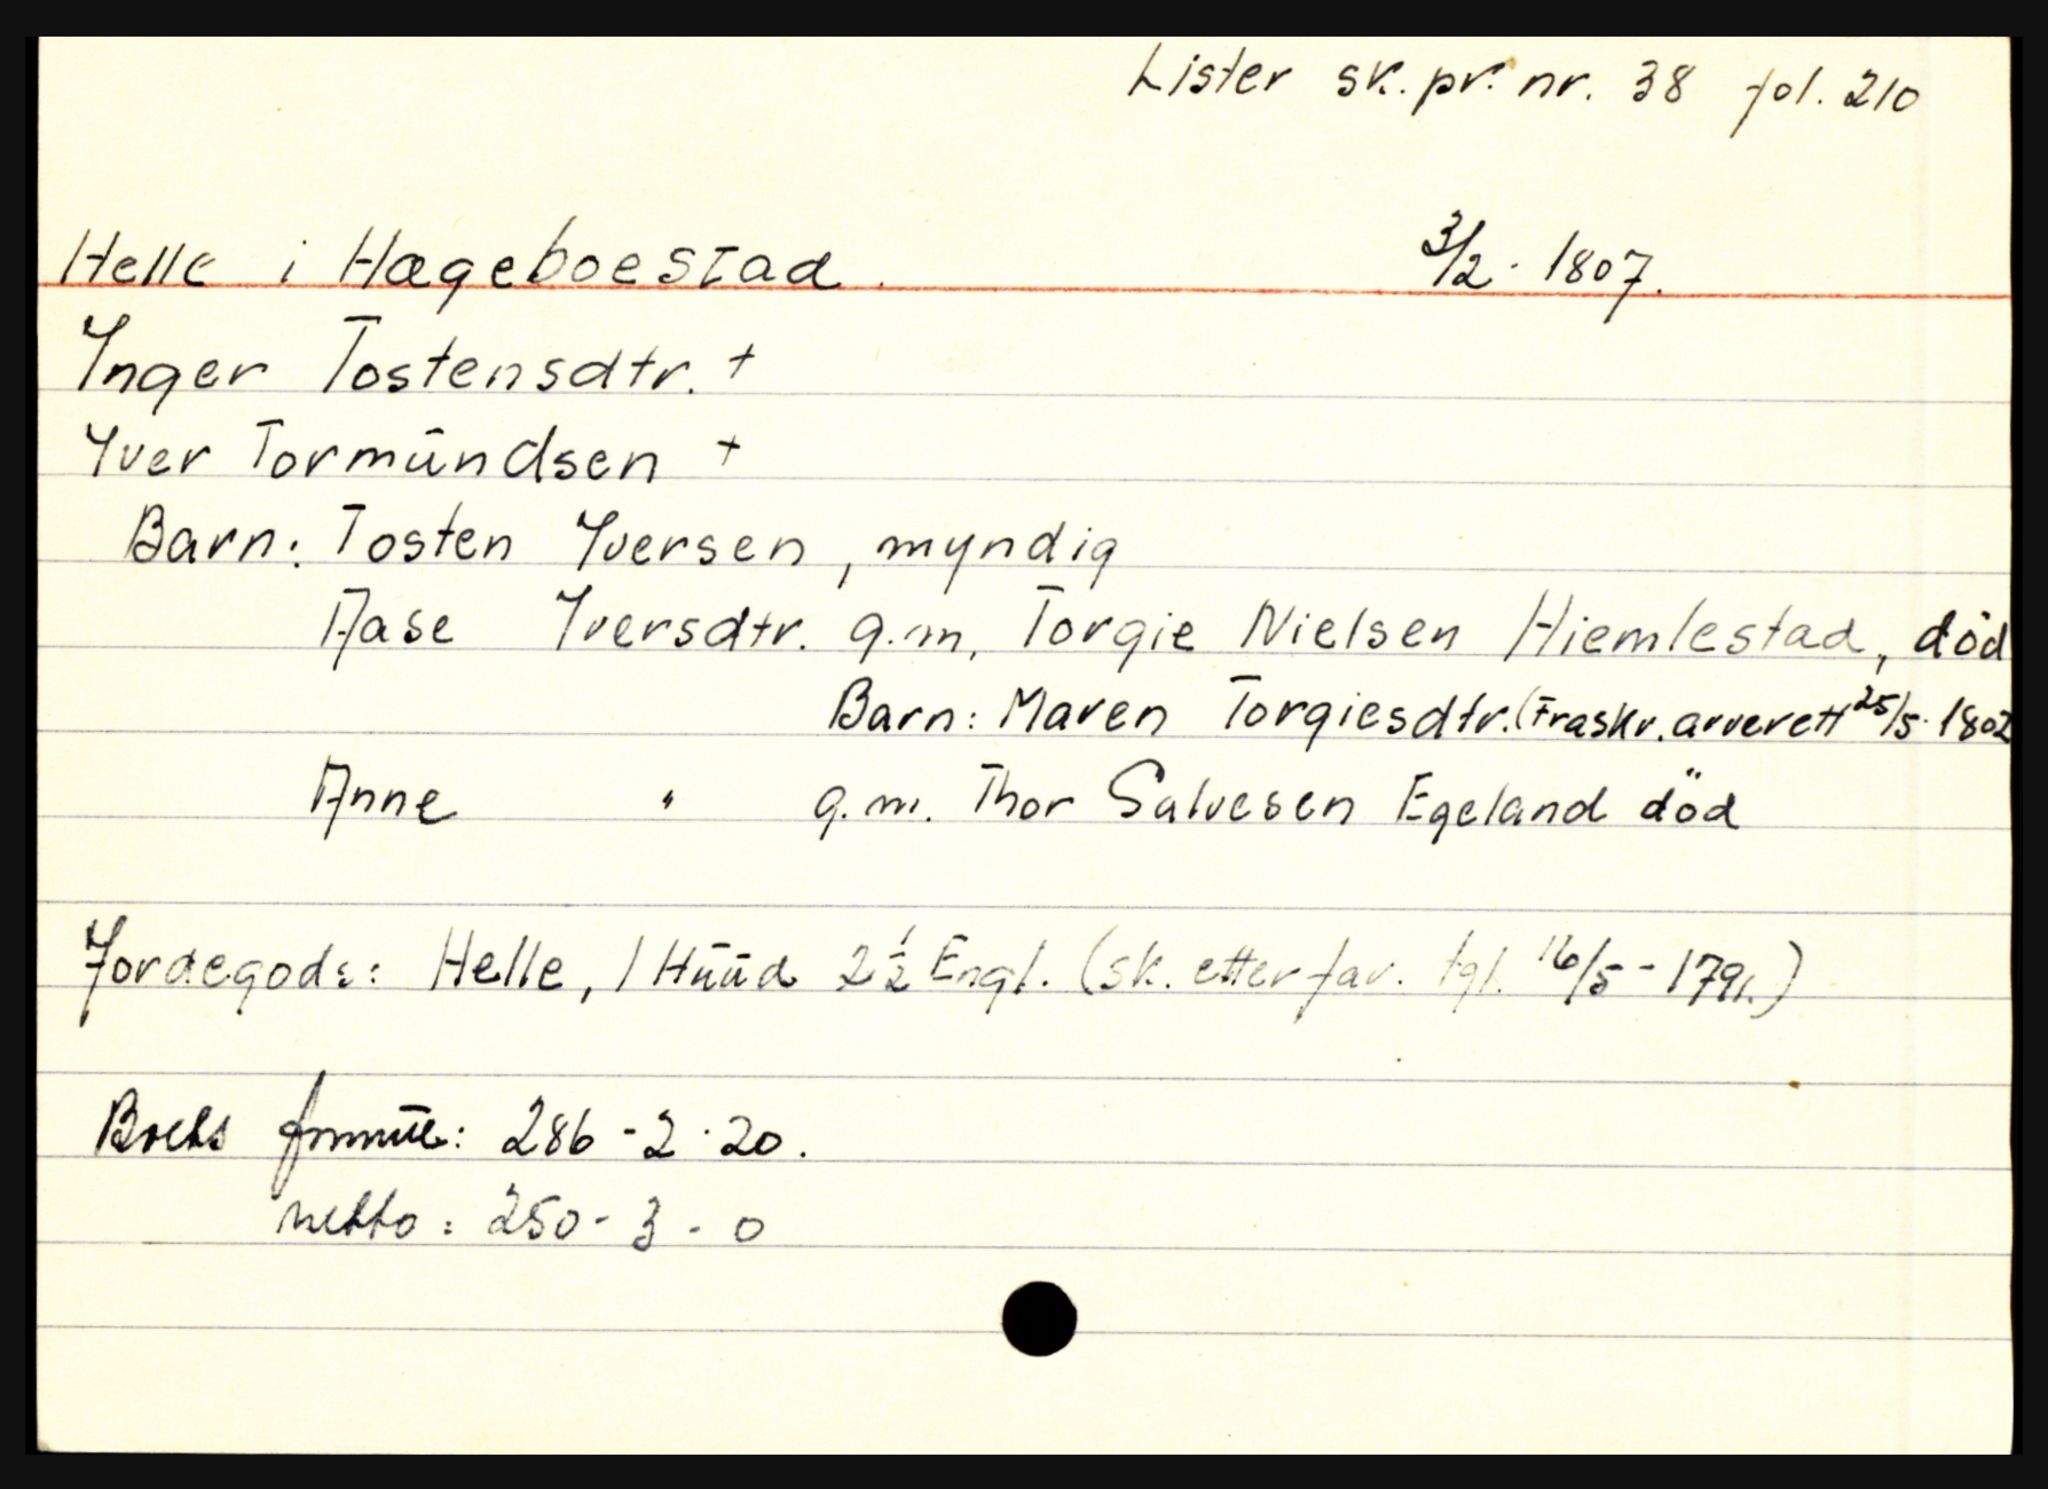 Lister sk.pr. nr. 38 fol. 210
Helle i Hægeboestad 3/2 - 1807.
Inger Tostensdtr. +
Iver Tormundsen +
Barn: Tosten Iversen, myndig
Aase Iversdtr. g.m. Torgie Nielsen Hiemlestad, död
Barn: Maren Torgiesdtr. (Fraskr. arverett 25/5 - 1802
Anne " g.m. Thor Salvesen Egeland död
Jordegods: Helle, 1 Huud 2 1/2 Engl. (sk. etter far. tgl. 16/5 - 1791.)
Boets 286 - 2 - 20.
netto: 250 - 3 - 0